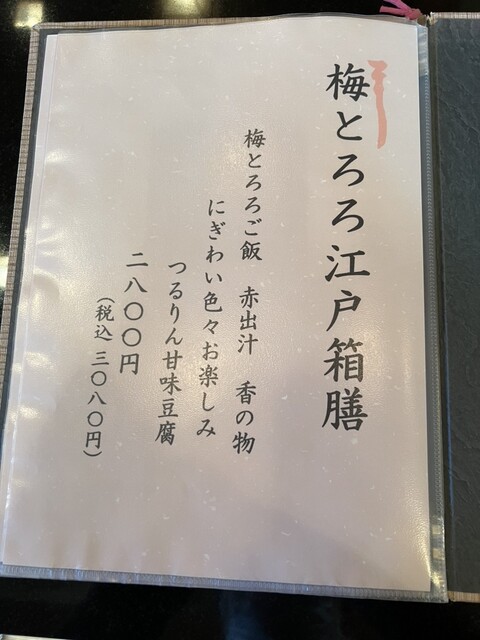 梅とろろ江戸箱膳
梅とろろご飯　赤出汁　香の物
にぎわい色々お楽しみ
つるりん甘味豆腐
二八〇〇円
（税込 三〇八〇円）